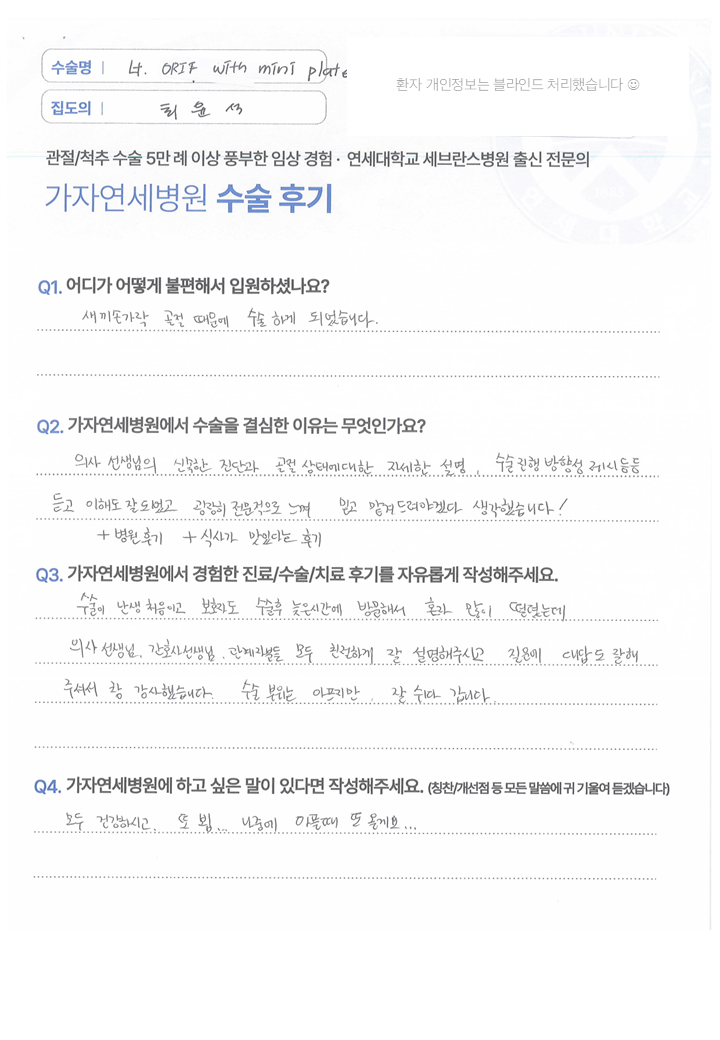 수술명 | Lt. ORIF with mini plate
환자 개인정보는 블라인드 처리했습니다 ☺
집도의 | 최윤석
관절/척추 수술 5만 례 이상 풍부한 임상 경험 · 연세대학교 세브란스병원 출신 전문의
가자연세병원 수술 후기
Q1. 어디가 어떻게 불편해서 입원하셨나요?
새끼손가락 골절 때문에 수술 하게 되었습니다.
Q2. 가자연세병원에서 수술을 결심한 이유는 무엇인가요?
의사 선생님의 신속한 진단과 골절 상태에대한 자세한 설명, 수술진행 방향성 제시등등
듣고 이해도 잘되었고 굉장히 전문적으로 느껴 믿고 맡겨드려야겠다 생각했습니다!
+ 병원후기 + 식사가 맛있다는 후기
Q3. 가자연세병원에서 경험한 진료/수술/치료 후기를 자유롭게 작성해주세요.
수술이 난생 처음이고 보호자도 수술후 늦은시간에 방문해서 혼자 많이 떨렸는데
의사 선생님, 간호사선생님, 관계자분들 모두 친절하게 잘 설명해주시고 질문에 대답도 잘해
주셔서 참 감사했습니다. 수술 부위는 아프지만, 잘 쉬다 갑니다.
Q4. 가자연세병원에 하고 싶은 말이 있다면 작성해주세요. (칭찬/개선점 등 모든 말씀에 귀 기울여 듣겠습니다)
모두 건강하시고, 또 뵙... 나중에 아플때 또 올게요...